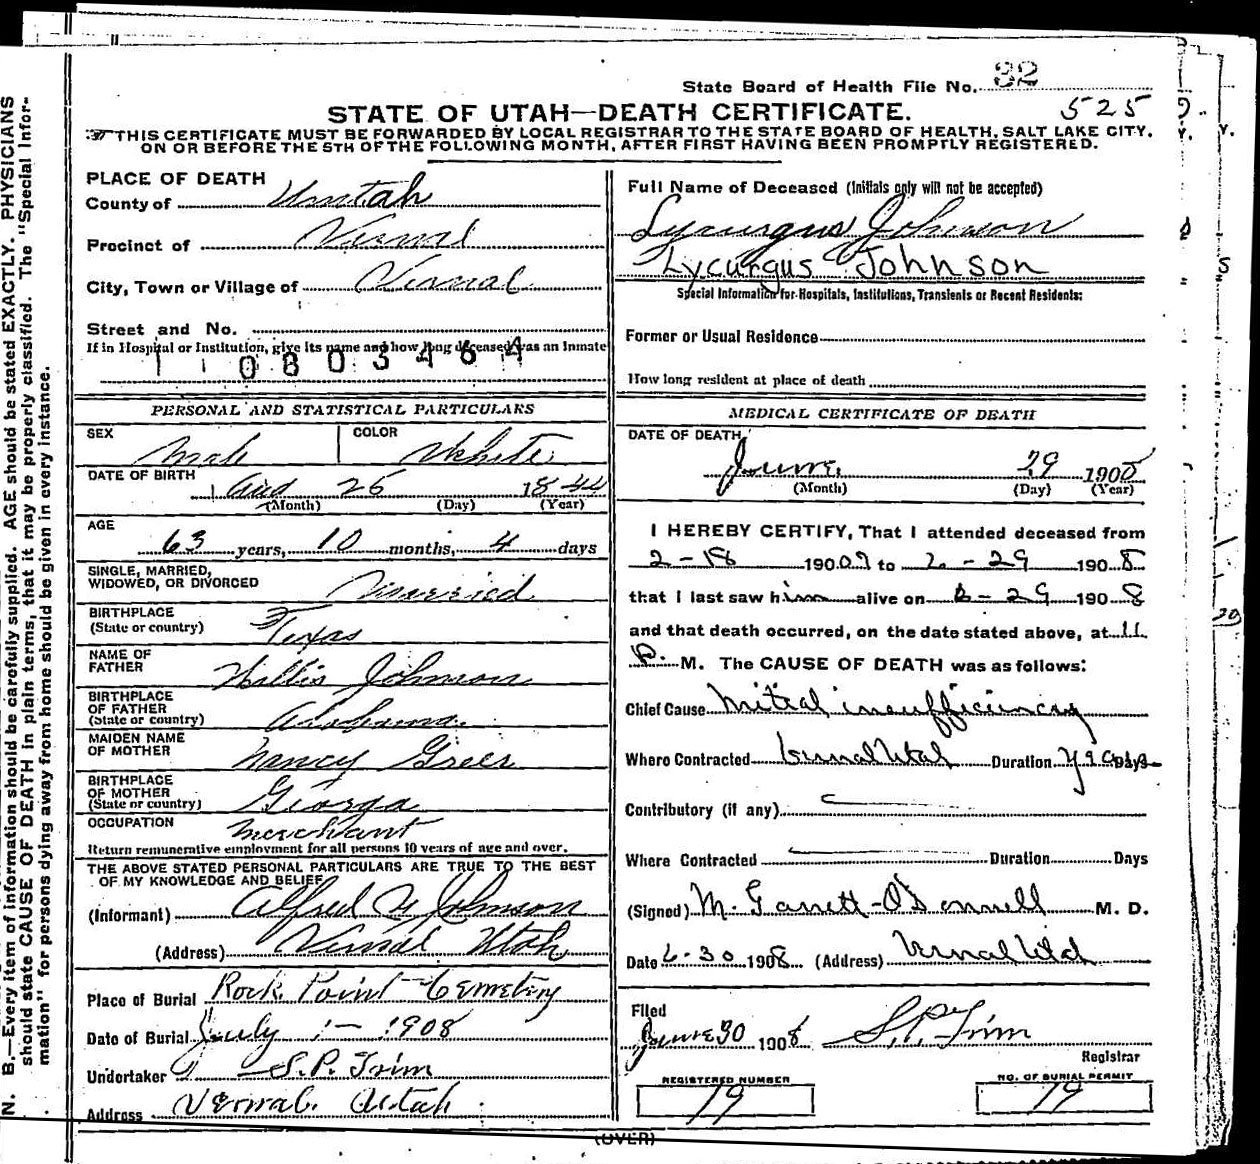 State Board of Health File No. 32
525
STATE OF UTAH—DEATH CERTIFICATE.
THIS CERTIFICATE MUST BE FORWARDED BY LOCAL REGISTRAR TO THE STATE BOARD OF HEALTH, SALT LAKE CITY,
ON OR BEFORE THE 5TH OF THE FOLLOWING MONTH, AFTER FIRST HAVING BEEN PROMPTLY REGISTERED.
N. B.—Every item of information should be carefully supplied. AGE should be stated EXACTLY. PHYSICIANS
should state CAUSE OF DEATH in plain terms, that it may be properly classified. The "Special Infor-
mation" for persons dying away from home should be given in every instance.
PLACE OF DEATH
County of Uintah
Precinct of Vernal
City, Town or Village of Vernal
Street and No.
If in Hospital or Institution, give its name and how long deceased was an Inmate
1 0803464
PERSONAL AND STATISTICAL PARTICULARS
SEX Male COLOR White
DATE OF BIRTH
Aug 25 1844
(Month) (Day) (Year)
AGE
63 years, 10 months, 4 days
SINGLE, MARRIED,
WIDOWED, OR DIVORCED Married
BIRTHPLACE
(State or country) Texas
NAME OF
FATHER Willis Johnson
BIRTHPLACE
OF FATHER
(State or country) Alabama
MAIDEN NAME
OF MOTHER Nancy Greer
BIRTHPLACE
OF MOTHER
(State or country) Giorga
OCCUPATION Merchant
Return remunerative employment for all persons 10 years of age and over.
THE ABOVE STATED PERSONAL PARTICULARS ARE TRUE TO THE BEST
OF MY KNOWLEDGE AND BELIEF
(Informant) Alfred Johnson
(Address) Vernal Utah
Place of Burial Rock Point Cemetery
Date of Burial July 1— 1908
Undertaker S.P. Trim
Address Vernal. Utah.
Full Name of Deceased (Initials only will not be accepted)
Lycurgus Johnson
Lycurgus Johnson
Special Information for Hospitals, Institutions, Transients or Recent Residents:
Former or Usual Residence
How long resident at place of death
MEDICAL CERTIFICATE OF DEATH
DATE OF DEATH
June 29 1908
(Month) (Day) (Year)
I HEREBY CERTIFY, That I attended deceased from
2-18 1907 to 6-29 1908
that I last saw him alive on 6-29 1908
and that death occurred, on the date stated above, at 11
P. M. The CAUSE OF DEATH was as follows:
Chief Cause Mitral insufficiency
Where Contracted Vernal Utah Duration Days
Contributory (if any)
Where Contracted Duration Days
(Signed) M. Garrett-O'Donnell M. D.
Date 6-30 1908 (Address) Vernal Utah
Filed
June 30 1908 S.P. Trim
Registrar
REGISTERED NUMBER
19
NO. OF BURIAL PERMIT
19
(OVER)